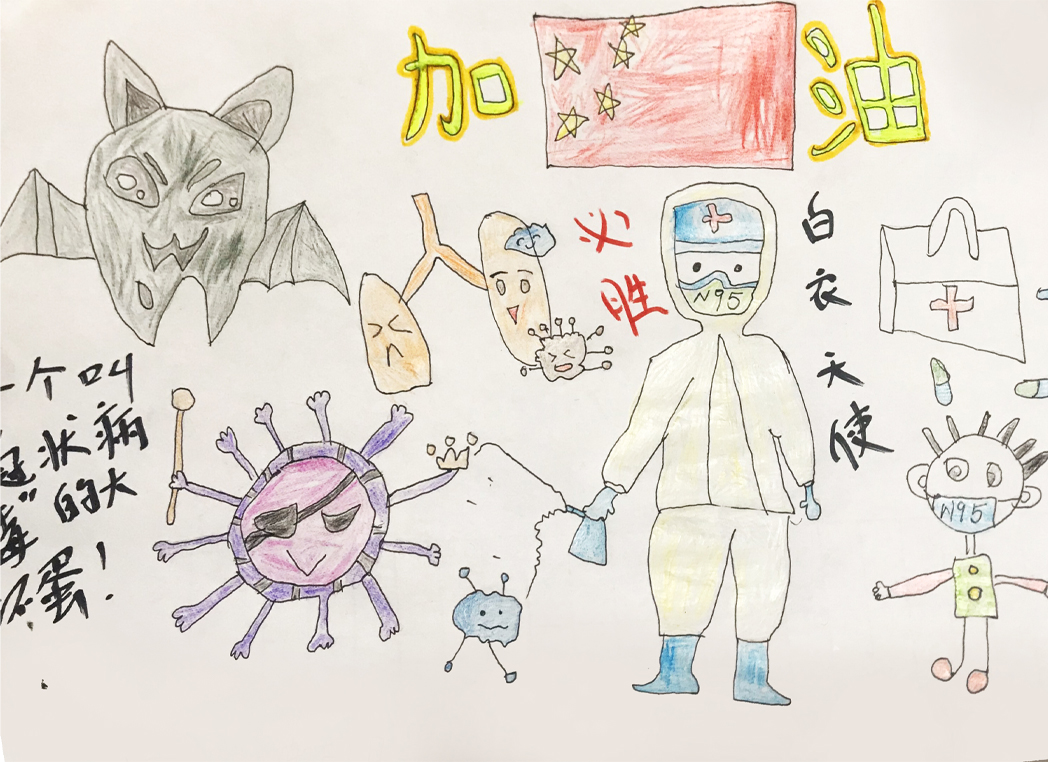 加油
必胜
白衣天使
N95
N95
一个叫
冠状病
毒”的大
坏蛋！